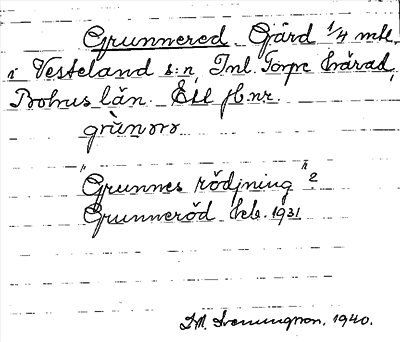 Grunnered Gård 1/4 mtl.
i Vesteland s:n, Inl. Torpe härad,
Bohus län. Ett jb.nr.
grùnrör
"Grunnes rödjning"?
Grunneröd kb. 1931
1940.